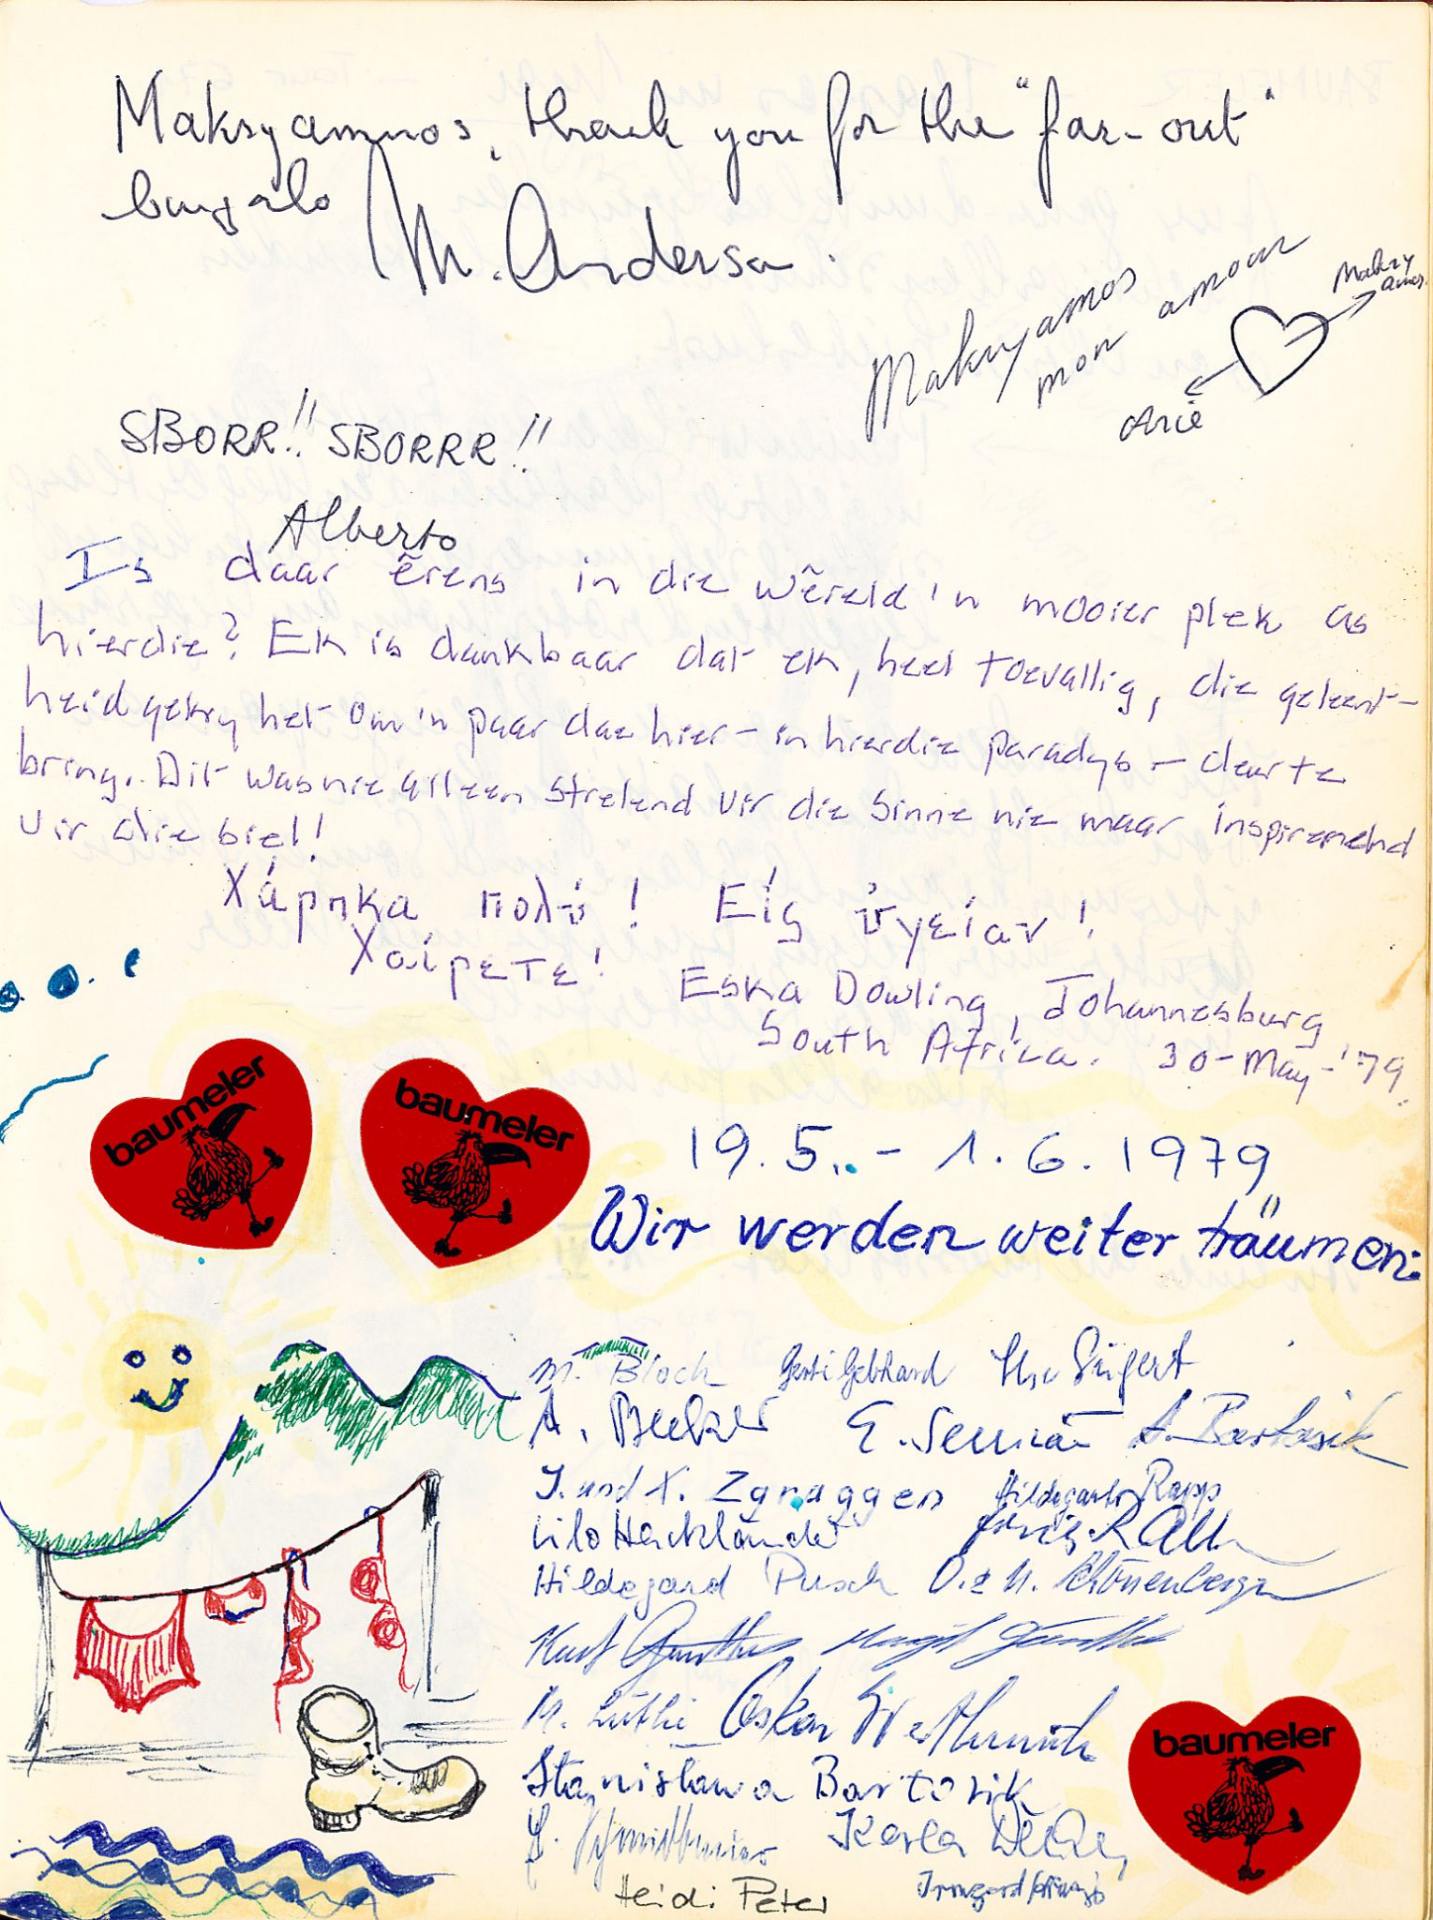 Makryammos, thank you for the "far-out"
bungalo
M. Anderson.
Makryamos
mon amour
Makry
amos
Arie
SBORR!! SBORRR!!
Alberto
Is daar êrens in die wêreld 'n mooier plek as
hierdie? Ek is dankbaar dat ek, heel toevallig, die geleent-
heid gekry het om 'n paar dae hier - in hierdie paradys - deur te
bring. Dit was nie alleen strelend vir die sinne nie maar inspirerend
vir die siel!
Χάρηκα πολύ! Είς ὑγείαν!
Χαίρετε! Eska Dowling, Johannesburg
South Africa. 30-May-'79.
baumeler
baumeler
19.5. - 1.6.1979
Wir werden weiter träumen.
M. Bloch Gerti Gebhard Ilse Seifert
A. Becker E. A. Bartosik
J. und X. Zgraggen Hildegard Rapp
Lilo Hackländer
Hildegard Pusch O. & N. Schönenberger
Kurt Günther Margit Günther
M. Lüthi Oskar
Stanislawa Bartosik
Karla
Heidi Peter Irmgard
baumeler